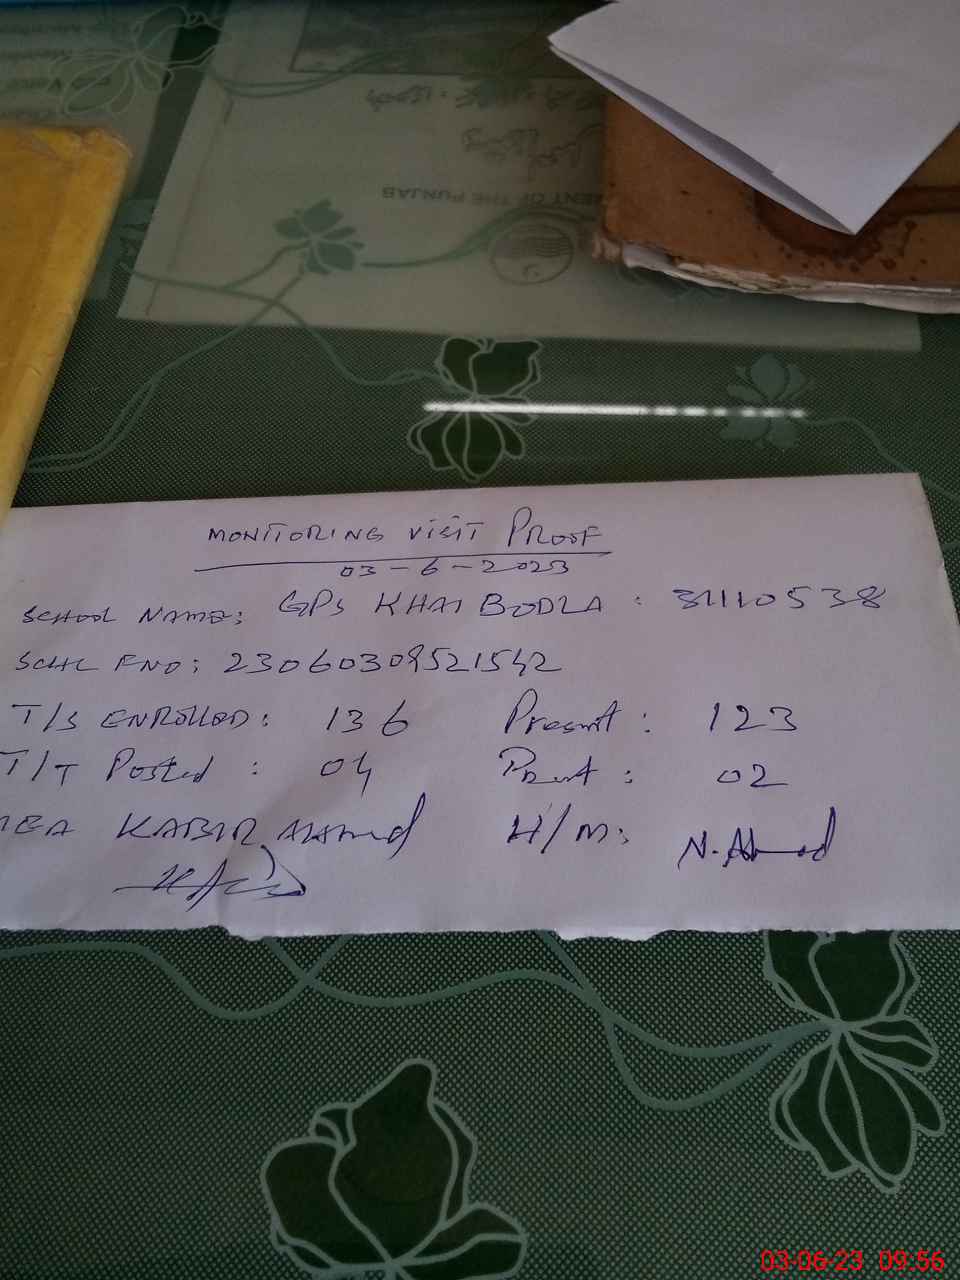 MENT OF THE PUNJAB
MONITORING VISIT PROOF
03-6-2023
SCHOOL NAME: GPS KHAI BODLA : 31110538
SCHL FNO: 23060309521542
T/S ENROLLED: 136 Present: 123
T/T Posted: 04 Prsnt: 02
MEA KABIR Ahmed H/M: N. Ahmad
03-06-23 09:56